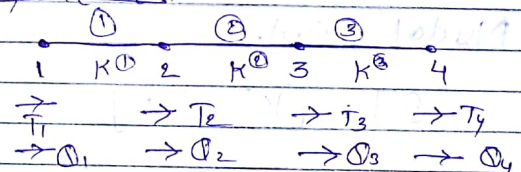 ① ② ③
1 K① 2 K② 3 K③ 4
→ T1 → T2 → T3 → T4
→ Q1 → Q2 → Q3 → Q4